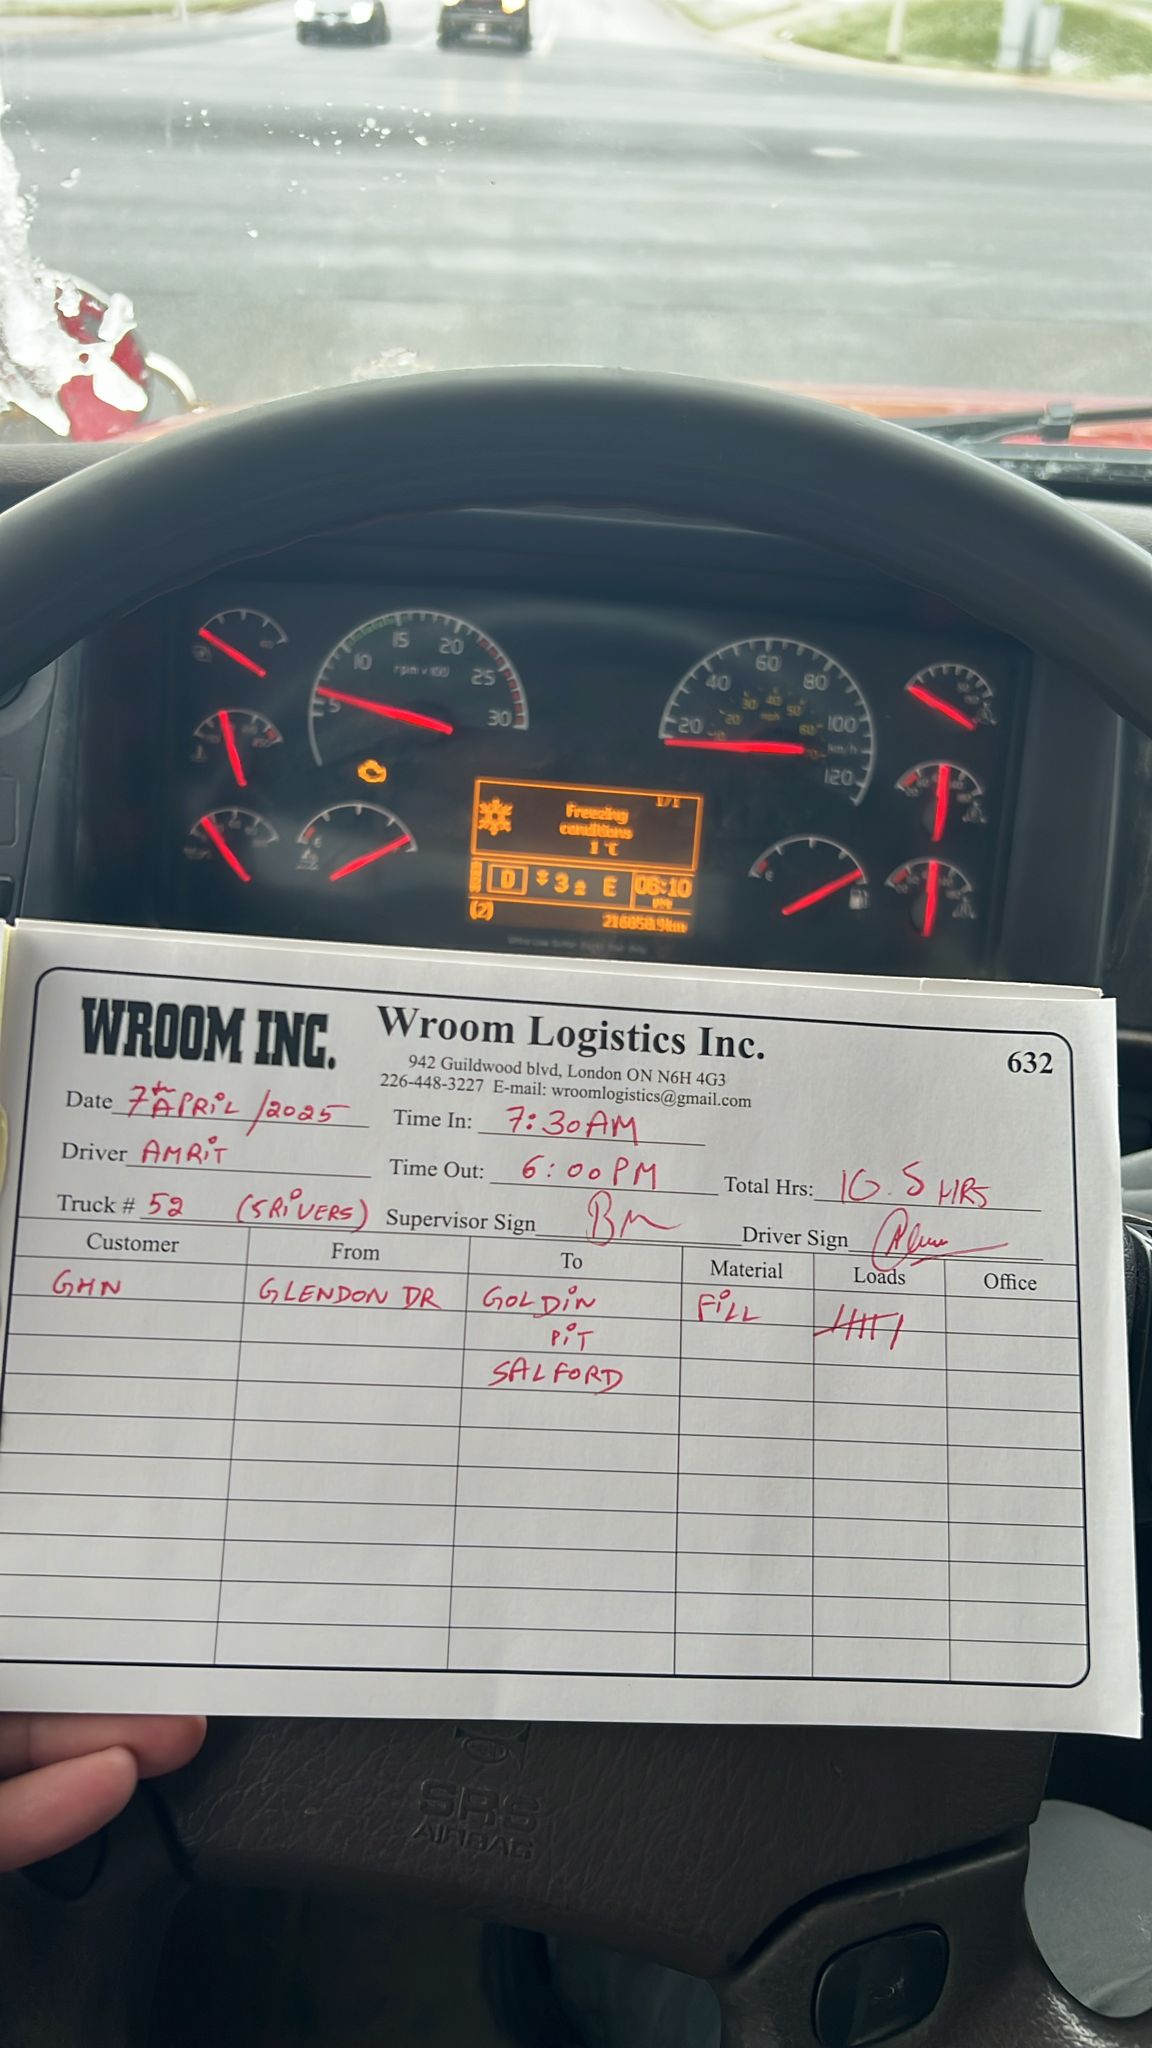 10 15 20 25 30
5
rpm x 100
20 40 60 80 100 120
km/h
mph
1/1
Freezing
conditions
1°C
D 3 E 06:10
PM
(2)
WROOM INC.
Wroom Logistics Inc.
632
942 Guildwood blvd, London ON N6H 4G3
226-448-3227 E-mail: wroomlogistics@gmail.com
Date 7th APRIL/2025 Time In: 7:30AM
Driver AMRIT Time Out: 6:00PM Total Hrs: 10.5 HRS
Truck # 52 (5RIVERS) Supervisor Sign Driver Sign
Customer From To Material Loads Office
GHN GLENDON DR GOLDIN FILL
PIT
SALFORD
SRS
AIRBAG